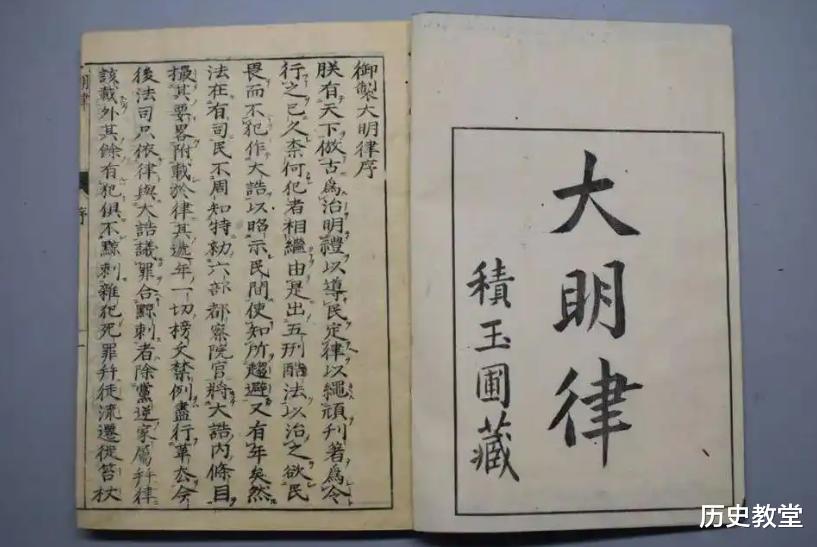 大明律
積玉圃藏
御製大明律序
朕有天下倣古爲治明禮以導民定律以繩頑刊著爲令
行之已久柰何犯者相繼由是出五刑酷法以治之欲民
畏而不犯作大誥以昭示民間使知所趨避又有年矣然
法在有司民不周知特勅六部都察院官將大誥内條目
撮其要畧附載於律其遞年一切榜文禁例盡行革去今
後法司只依律與大誥議罪合黥刺者除黨逆家屬幷律
該載外其餘有犯俱不黥刺雜犯死罪幷徒流遷徙笞杖
明律
序
一
历史教堂